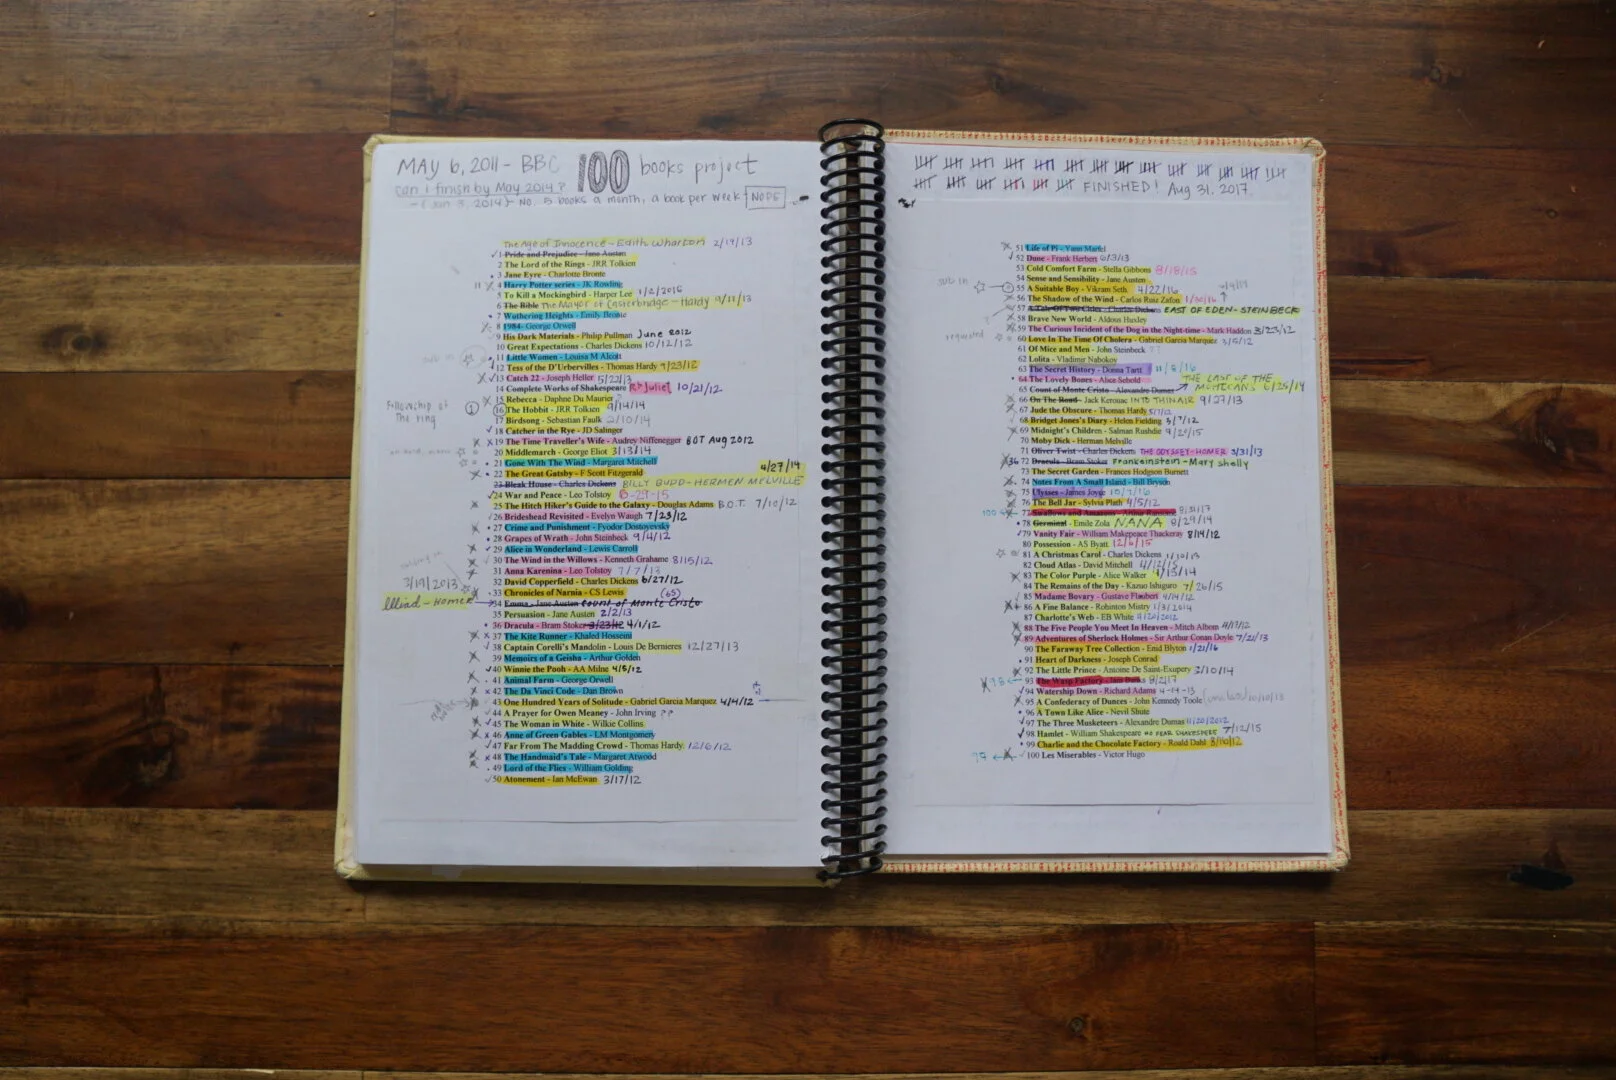 MAY 6, 2011 - BBC 100 books project
can i finish by May 2014?
(Jan 3, 2014) - No. 5 books a month, a book per week NOPE
The Age of Innocence - Edith Wharton 2/19/13
1 Pride and Prejudice - Jane Austen
2 The Lord of the Rings - JRR Tolkien
3 Jane Eyre - Charlotte Bronte
11 4 Harry Potter series - JK Rowling
5 To Kill a Mockingbird - Harper Lee 1/2/2016
6 The Bible The Mayor of Casterbridge - Hardy 9/11/13
7 Wuthering Heights - Emily Bronte
8 1984 - George Orwell
9 His Dark Materials - Philip Pullman June 2012
10 Great Expectations - Charles Dickens 10/12/12
sub in 11 Little Women - Louisa M Alcott
12 Tess of the D'Urbervilles - Thomas Hardy 9/23/12
13 Catch 22 - Joseph Heller 5/22/13
14 Complete Works of Shakespeare R+Juliet 10/21/12
15 Rebecca - Daphne Du Maurier
Fellowship of The ring 1 16 The Hobbit - JRR Tolkien 9/14/14
17 Birdsong - Sebastian Faulk 2/10/14
18 Catcher in the Rye - JD Salinger
19 The Time Traveller's Wife - Audrey Niffenegger BOT Aug 2012
20 Middlemarch - George Eliot 3/13/14
21 Gone With The Wind - Margaret Mitchell
22 The Great Gatsby - F Scott Fitzgerald 4/27/14
23 Bleak House - Charles Dickens BILLY BUDD - HERMEN MELVILLE
24 War and Peace - Leo Tolstoy
25 The Hitch Hiker's Guide to the Galaxy - Douglas Adams B.O.T. 7/10/12
26 Brideshead Revisited - Evelyn Waugh 7/23/12
27 Crime and Punishment - Fyodor Dostoyevsky
28 Grapes of Wrath - John Steinbeck 9/4/12
29 Alice in Wonderland - Lewis Carroll
30 The Wind in the Willows - Kenneth Grahame 8/15/12
31 Anna Karenina - Leo Tolstoy 7/7/13
3/19/2013 32 David Copperfield - Charles Dickens 6/27/12
33 Chronicles of Narnia - CS Lewis (65)
Illiad - Homer 34 Emma - Jane Austen Count of Monte Cristo
35 Persuasion - Jane Austen 2/2/13
36 Dracula - Bram Stoker 3/23/12 4/1/12
37 The Kite Runner - Khaled Hosseini
38 Captain Corelli's Mandolin - Louis De Bernieres 12/27/13
39 Memoirs of a Geisha - Arthur Golden
40 Winnie the Pooh - AA Milne 4/5/12
41 Animal Farm - George Orwell
42 The Da Vinci Code - Dan Brown
43 One Hundred Years of Solitude - Gabriel Garcia Marquez 4/4/12
44 A Prayer for Owen Meaney - John Irving ??
45 The Woman in White - Wilkie Collins
46 Anne of Green Gables - LM Montgomery
47 Far From The Madding Crowd - Thomas Hardy 12/6/12
48 The Handmaid's Tale - Margaret Atwood
49 Lord of the Flies - William Golding
50 Atonement - Ian McEwan 3/17/12
FINISHED! Aug 31. 2017
51 Life of Pi - Yann Martel
52 Dune - Frank Herbert 6/3/13
53 Cold Comfort Farm - Stella Gibbons 8/18/15
54 Sense and Sensibility - Jane Austen
sub in 55 A Suitable Boy - Vikram Seth 4/22/16
56 The Shadow of the Wind - Carlos Ruiz Zafon
57 A Tale Of Two Cities - Charles Dickens EAST OF EDEN - STEINBECK
58 Brave New World - Aldous Huxley
59 The Curious Incident of the Dog in the Night-time - Mark Haddon 3/23/12
requested 60 Love In The Time Of Cholera - Gabriel Garcia Marquez 3/5/12
61 Of Mice and Men - John Steinbeck ??
62 Lolita - Vladimir Nabokov
63 The Secret History - Donna Tartt 11/8/16
64 The Lovely Bones - Alice Sebold THE LAST OF THE
65 Count of Monte Cristo - Alexandre Dumas MOHICANS 6/25/14
66 On The Road - Jack Kerouac INTO THIN AIR 9/27/13
67 Jude the Obscure - Thomas Hardy
68 Bridget Jones's Diary - Helen Fielding 3/7/12
69 Midnight's Children - Salman Rushdie
70 Moby Dick - Herman Melville
71 Oliver Twist - Charles Dickens THE ODYSSEY - HOMER 3/31/13
36 72 Dracula - Bram Stoker Frankenstein - Mary Shelly
73 The Secret Garden - Frances Hodgson Burnett
74 Notes From A Small Island - Bill Bryson
75 Ulysses - James Joyce 10/7/16
76 The Bell Jar - Sylvia Plath 4/5/12
100 77 Swallows and Amazons - Arthur Ransome 8/31/17
78 Germinal - Emile Zola NANA 8/29/14
79 Vanity Fair - William Makepeace Thackeray 8/14/12
80 Possession - AS Byatt 12/6/15
81 A Christmas Carol - Charles Dickens 1/10/13
82 Cloud Atlas - David Mitchell 4/12/13
83 The Color Purple - Alice Walker 4/15/14
84 The Remains of the Day - Kazuo Ishiguro 7/26/15
85 Madame Bovary - Gustave Flaubert 4/14/12
86 A Fine Balance - Rohinton Mistry 1/3/2014
87 Charlotte's Web - EB White 11/20/2012
88 The Five People You Meet In Heaven - Mitch Albom 4/13/12
89 Adventures of Sherlock Holmes - Sir Arthur Conan Doyle 7/21/13
90 The Faraway Tree Collection - Enid Blyton 1/21/16
91 Heart of Darkness - Joseph Conrad
92 The Little Prince - Antoine De Saint-Exupery 3/10/14
98 93 The Wasp Factory - Iain Banks 8/2/17
94 Watership Down - Richard Adams 4-14-13
95 A Confederacy of Dunces - John Kennedy Toole
96 A Town Like Alice - Nevil Shute
97 The Three Musketeers - Alexandre Dumas 11/20/2012
98 Hamlet - William Shakespeare NO FEAR SHAKESPERE 7/12/15
99 Charlie and the Chocolate Factory - Roald Dahl 8/10/12
99 100 Les Miserables - Victor Hugo